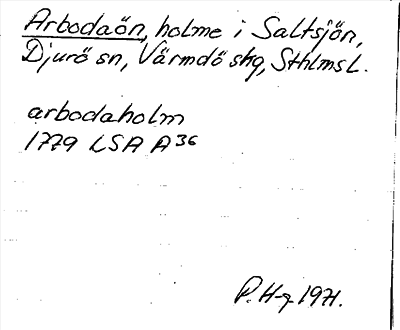 Arbodaön, holme i Saltsjön,
Djurö sn, Värmdö skg, Sthlms L.
arbodaholm
1779 LSA A 36
P. H-g. 1971.